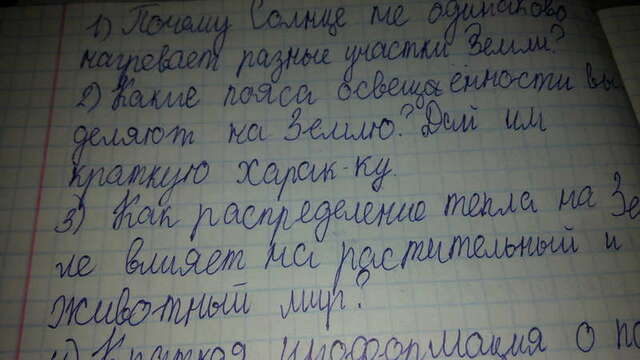 1) Почому Солнце не одинаково
нагревает разные участки Земли?
2) Какие пояса освещённости вы
деляют на Землю? Дай им
краткую харак-ку.
3) Как распределение тепла на Зе
ле влияет на растительный и
животный мир?
4) Краткая информация о по